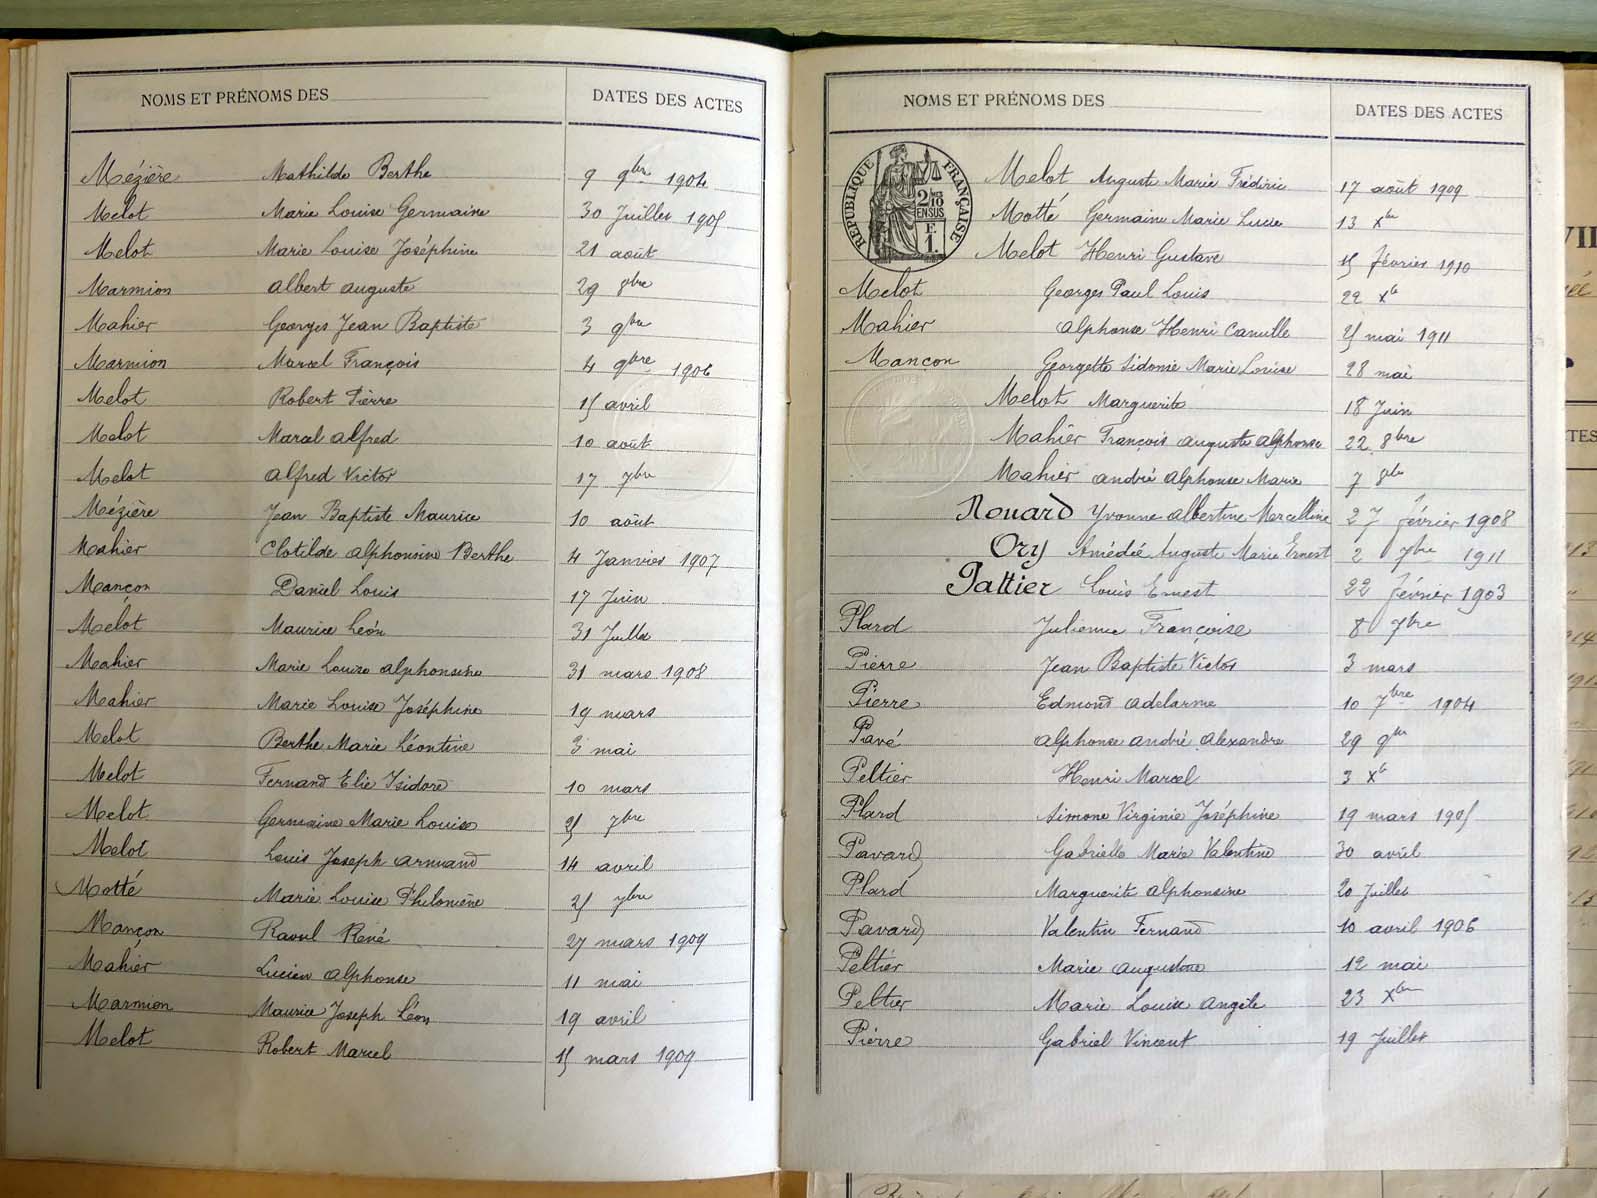 NOMS ET PRÉNOMS DES DATES DES ACTES
Mézière Mathilde Berthe 9 9bre 1904
Melot Marie Louise Germaine 30 Juillet 1905
Melot Marie Louise Joséphine 21 août
Marmion Albert Auguste 29 8bre
Mahier Georges Jean Baptiste 3 9bre
Marmion Marcel François 4 9bre 1906
Melot Robert Pierre 15 avril
Melot Marcel Alfred 10 août
Melot Alfred Victor 17 7bre
Mézière Jean Baptiste Maurice 10 août
Mahier Clotilde Alphonsine Berthe 4 Janvier 1907
Mançon Daniel Louis 17 Juin
Melot Maurice Léon 31 Juillet
Mahier Marie Louise Alphonsine 31 mars 1908
Mahier Marie Louise Joséphine 19 mars
Melot Berthe Marie Léontine 3 mai
Melot Fernand Elie Isidore 10 mars
Melot Germaine Marie Louise 25 7bre
Melot Louis Joseph Armand 14 avril
Motté Marie Louise Philomène 25 7bre
Mançon Raoul René 27 mars 1909
Mahier Lucien Alphonse 11 mai
Marmion Maurice Joseph Léon 19 avril
Melot Robert Marcel 15 mars 1909
NOMS ET PRÉNOMS DES DATES DES ACTES
RÉPUBLIQUE FRANÇAISE
2/10
EN SUS
E.
1.
Melot Auguste Marie Frédéric 17 août 1909
Motté Germaine Marie Lucie 13 Xbre
Melot Henri Gustave 15 février 1910
Melot Georges Paul Louis 22 Xb
Mahier Alphonse Henri Camille 25 mai 1911
Mançon Georgette Sidonie Marie Louise 28 mai
Melot Marguerite 18 Juin
Mahier François Auguste Alphonse 22 8bre
Mahier André Alphonse Marie 7 8bre
Nouard Yvonne Albertine Marcelline 27 février 1908
Ory Amédée Auguste Marie Ernest 2 7bre 1911
Pattier Louis Ernest 22 février 1903
Plard Julienne Françoise 8 7bre
Pierre Jean Baptiste Victor 3 mars
Pierre Edmond Adelarme 10 7bre 1904
Pavé Alphonse André Alexandre 29 9bre
Peltier Henri Marcel 3 Xb
Plard Simone Virginie Joséphine 19 mars 1905
Pavard Gabrielle Marie Valentine 30 avril
Plard Marguerite Alphonsine 20 Juillet
Pavard Valentin Fernand 10 avril 1906
Peltier Marie Augustine 12 mai
Peltier Marie Louise Angèle 23 Xbre
Pierre Gabriel Vincent 19 Juillet